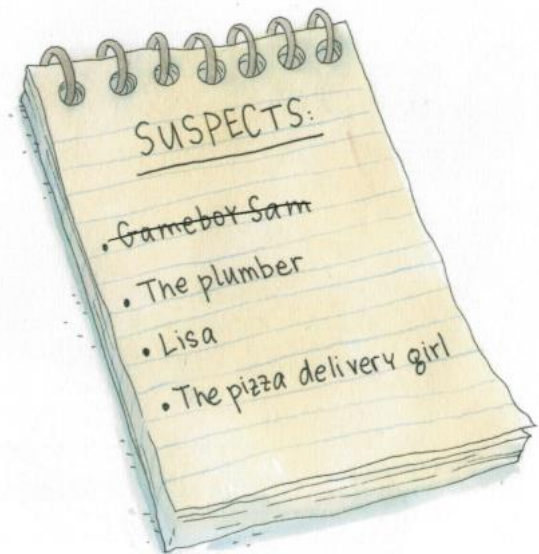 SUSPECTS:
• Gameboy Sam
• The plumber
• Lisa
• The pizza delivery girl